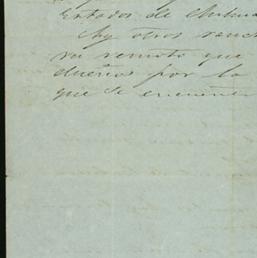 Estados de Chihua
Ay otros ranch
su remoto que
dueños por lo
que se encuentr